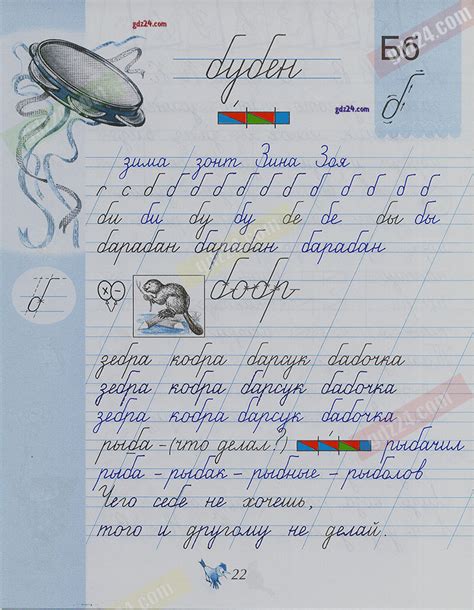 gdz24.com
Бб
бубен
gdz24.com
б
зима зонт Зина Зоя
с с б б б б б б б б б б б
би би бу бу бе бе бы бы
барабан барабан барабан
б
бобр
зебра кобра барсук бабочка
зебра кобра барсук бабочка
зебра кобра барсук бабочка
рыба - (что делал?) рыбачил
рыба - рыбак - рыбные - рыболов
Чего себе не хочешь,
того и другому не делай.
22